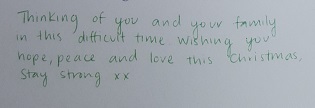 Thinking of you and your family
in this difficult time. Wishing you
hope, peace and love this Christmas.
Stay strong xx